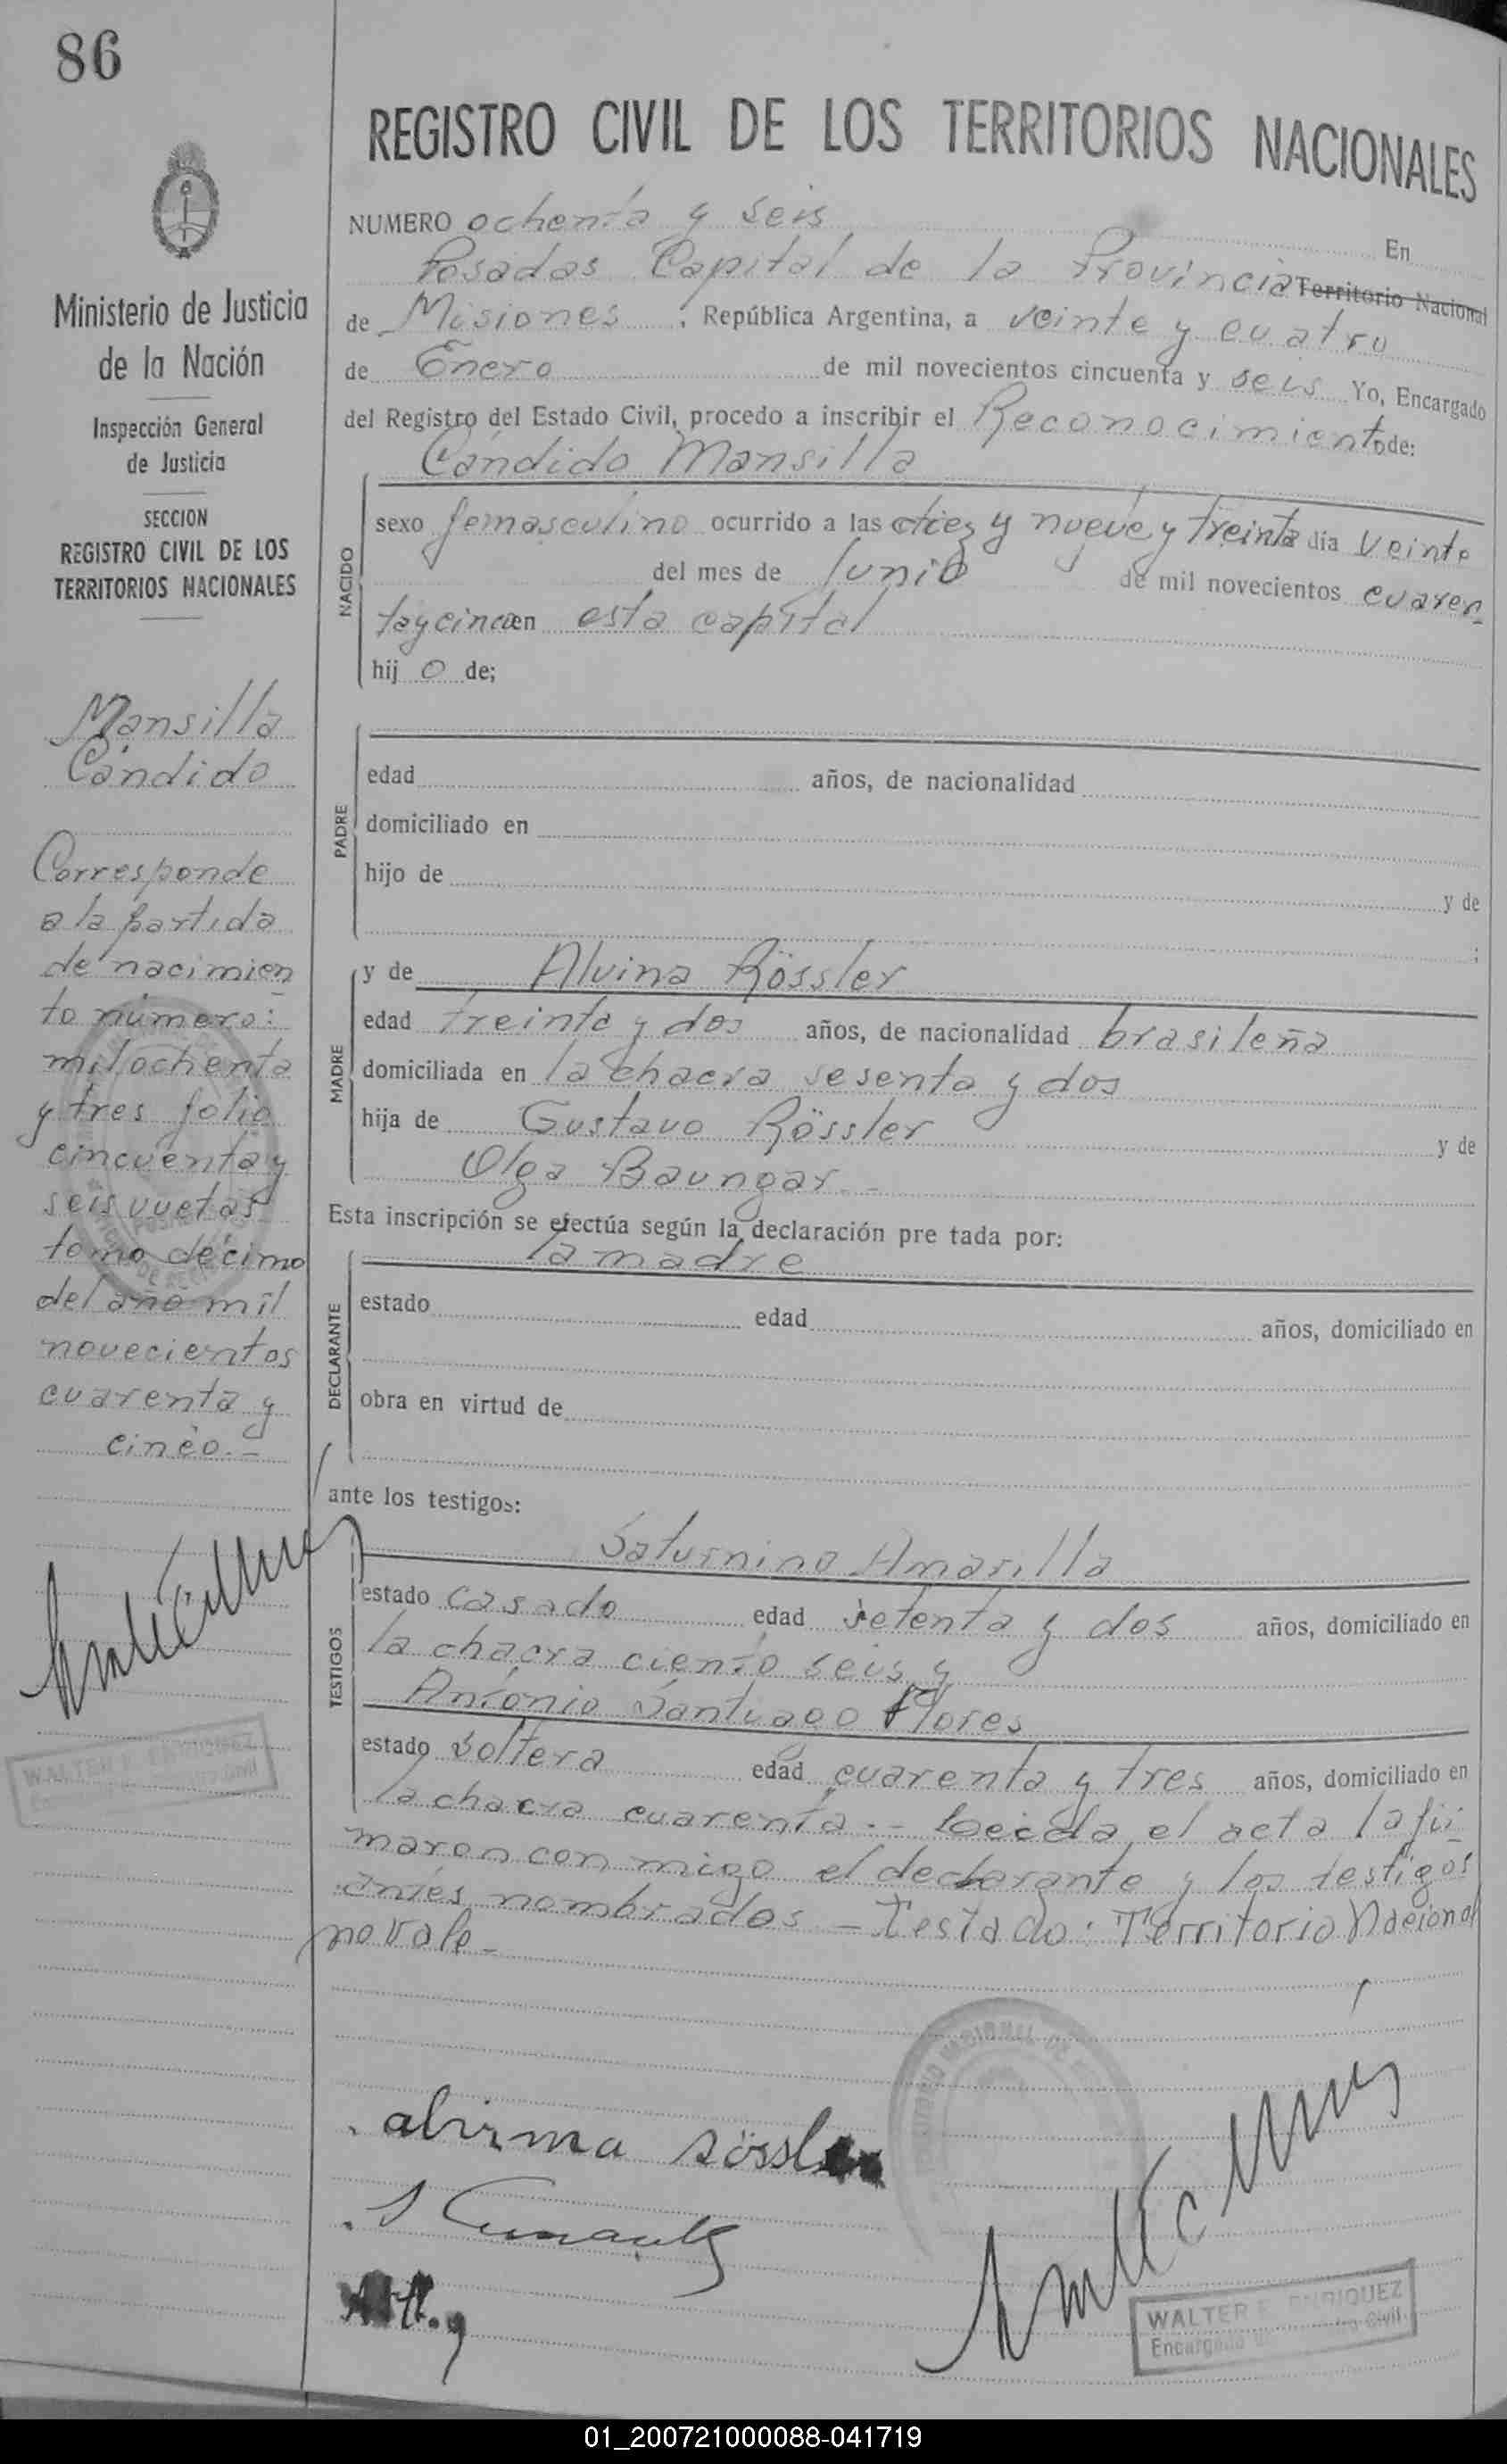 86
REGISTRO CIVIL DE LOS TERRITORIOS NACIONALES
Ministerio de Justicia
de la Nación
Inspección General
de Justicia
SECCION
REGISTRO CIVIL DE LOS
TERRITORIOS NACIONALES
Mansilla
Cándido
Corresponde
a la partida
de nacimien
to número:
mil ochenta
y tres folio
cincuenta y
seis vueta
tomo décimo
del año mil
novecientos
cuarenta y
cinco.-
WALTER E. ENRIQUEZ
NUMERO ochenta y seis En
Posadas Capital de la Provincia Territorio Nacional
de Misiones, República Argentina, a veinte y cuatro
de Enero de mil novecientos cincuenta y seis Yo, Encargado
del Registro del Estado Civil, procedo a inscribir el Reconocimiento de:
Cándido Mansilla
NACIDO
sexo femasculino ocurrido a las diez y nueve y treinta día veinte
del mes de Junio de mil novecientos cuaren
taycinco en esta capital
hij o de;
PADRE
edad años, de nacionalidad
domiciliado en
hijo de y de
;
MADRE
y de Alvina Rössler
edad treinta y dos años, de nacionalidad brasileña
domiciliada en la chacra sesenta y dos
hija de Gustavo Rössler y de
Olga Baungar -
Esta inscripción se efectúa según la declaración pre tada por:
la madre
DECLARANTE
estado edad años, domiciliado en
obra en virtud de
ante los testigos:
TESTIGOS
Saturnino Amarilla
estado casado edad setenta y dos años, domiciliado en
la chacra ciento seis y
Antonio Santiago Flores
estado soltera edad cuarenta y tres años, domiciliado en
la chacra cuarenta.- Leida el acta la fir
maron con migo el declarante y los testigos
antes nombrados - Testado: Territorio Nacional
no vale -
alvirma rössler
WALTER E. ENRIQUEZ
Encargado Civil
01_200721000088-041719